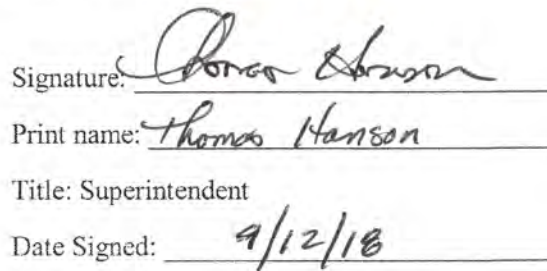 Signature: Thomas Hanson
Print name: Thomas Hanson
Title: Superintendent
Date Signed: 9/12/18